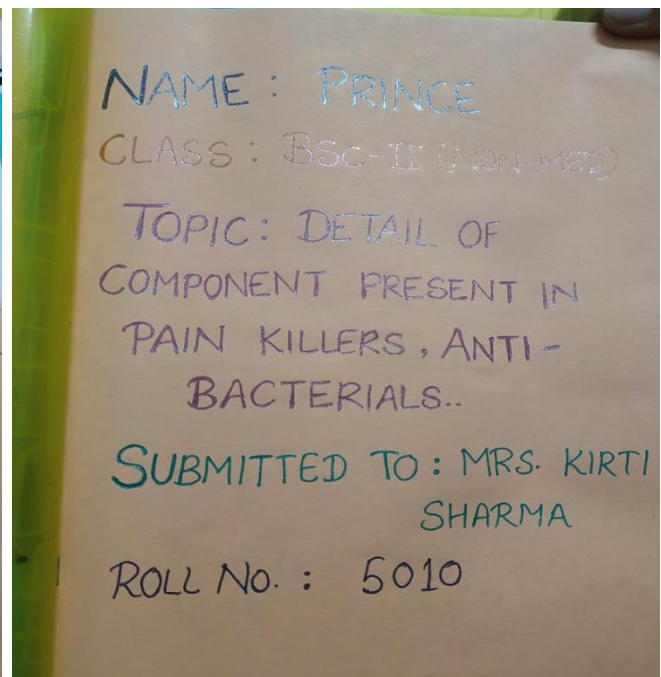 NAME : PRINCE
CLASS : BSC-II (NON-MED)
TOPIC : DETAIL OF
COMPONENT PRESENT IN
PAIN KILLERS, ANTI-
BACTERIALS..
SUBMITTED TO : MRS. KIRTI
SHARMA
ROLL NO. : 5010